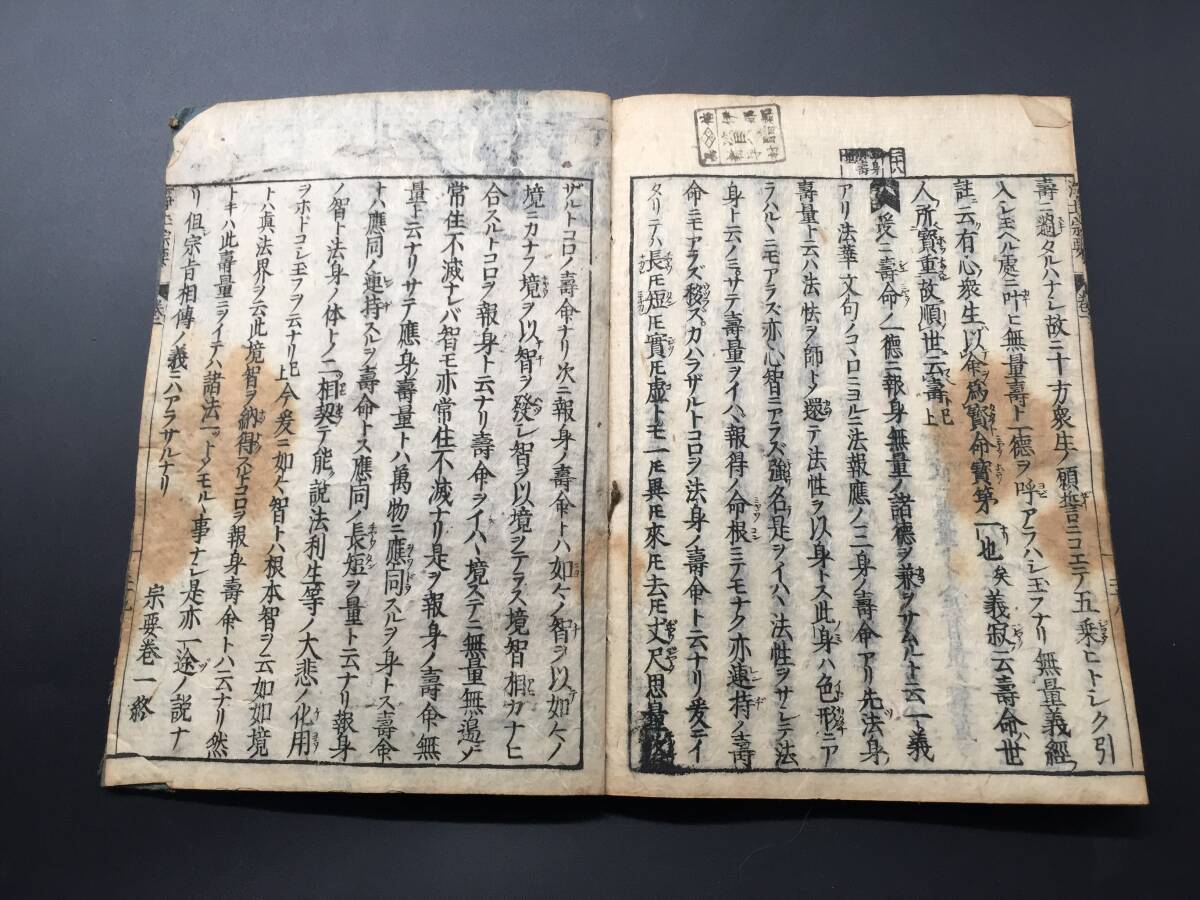 壽ニ過タルハナシ故ニ十方衆生ノ願誓ニコエテ五乗ヒトシク引
入シ玉ヘル處ニ叶ヒ無量壽ト一徳ヲ呼アラハシ玉フナリ無量義經ノ
註云有心衆生以命爲寳命寳第一也矣義寂云壽命世
人所寳重故順世云壽上已
爰ニ壽命ノ一徳ニ報身無量ノ諸徳ヲ兼ヲサムルト云一義
アリ法華文句ノコヽロニヨルニ法報應ノ三身ノ壽命アリ先法身
壽量ト云ハ法性ヲ師トノ還テ法性ヲ以身トス此身ハ色形ニア
ラハレヽニモアラス亦心智ニアラズ強名是ヲイハヽ法性ヲサシテ法
身ト云ノミサテ壽量ヲイハヽ報得ノ命根ニテモナク亦連持ノ壽
命ニモアラズ移スカハラザルトコロヲ法身ノ壽命ト云ナリ爰ニイ
タリテハ長モ短モ實モ虚トモ一モ異モ來モ去モ丈尺思量
ザルトコロノ壽命ナリ次ニ報身ノ壽命トハ如々ノ智ヲ以如々ノ
境ニカナフ境ヲ以智ヲ發シ智ヲ以境ヲテラス境智相カナヒ
合スルトコロヲ報身ト云ナリ壽命ヲイハヽ境ステニ無量無邉ノ
常住不滅ナレバ智モ亦常住不滅ナリ是ヲ報身ノ壽命無
量ト云ナリサテ應身ノ壽量トハ萬物ニ應同スルヲ身トス壽命
ナハ應同ノ連持スルヲ壽命トス應同ノ長短ヲ量ト云ナリ報身
ノ智ト法身ノ体トノ二相契テ能說法利生等ノ大悲ノ化用
ヲホドコシ玉フヲ云ナリ已上今爰ニ如々智トハ根本智ヲ云如如境
トハ真法界ヲ云此境智ヲ納得スルトコロヲ報身壽命トハ云ナリ然
トキハ此壽量ニヲイテハ諸法一ットノモルヽ事ナシ是亦一途ノ說ナ
リ但宗旨相傳ノ義ニハアラサルナリ
宗要卷一終